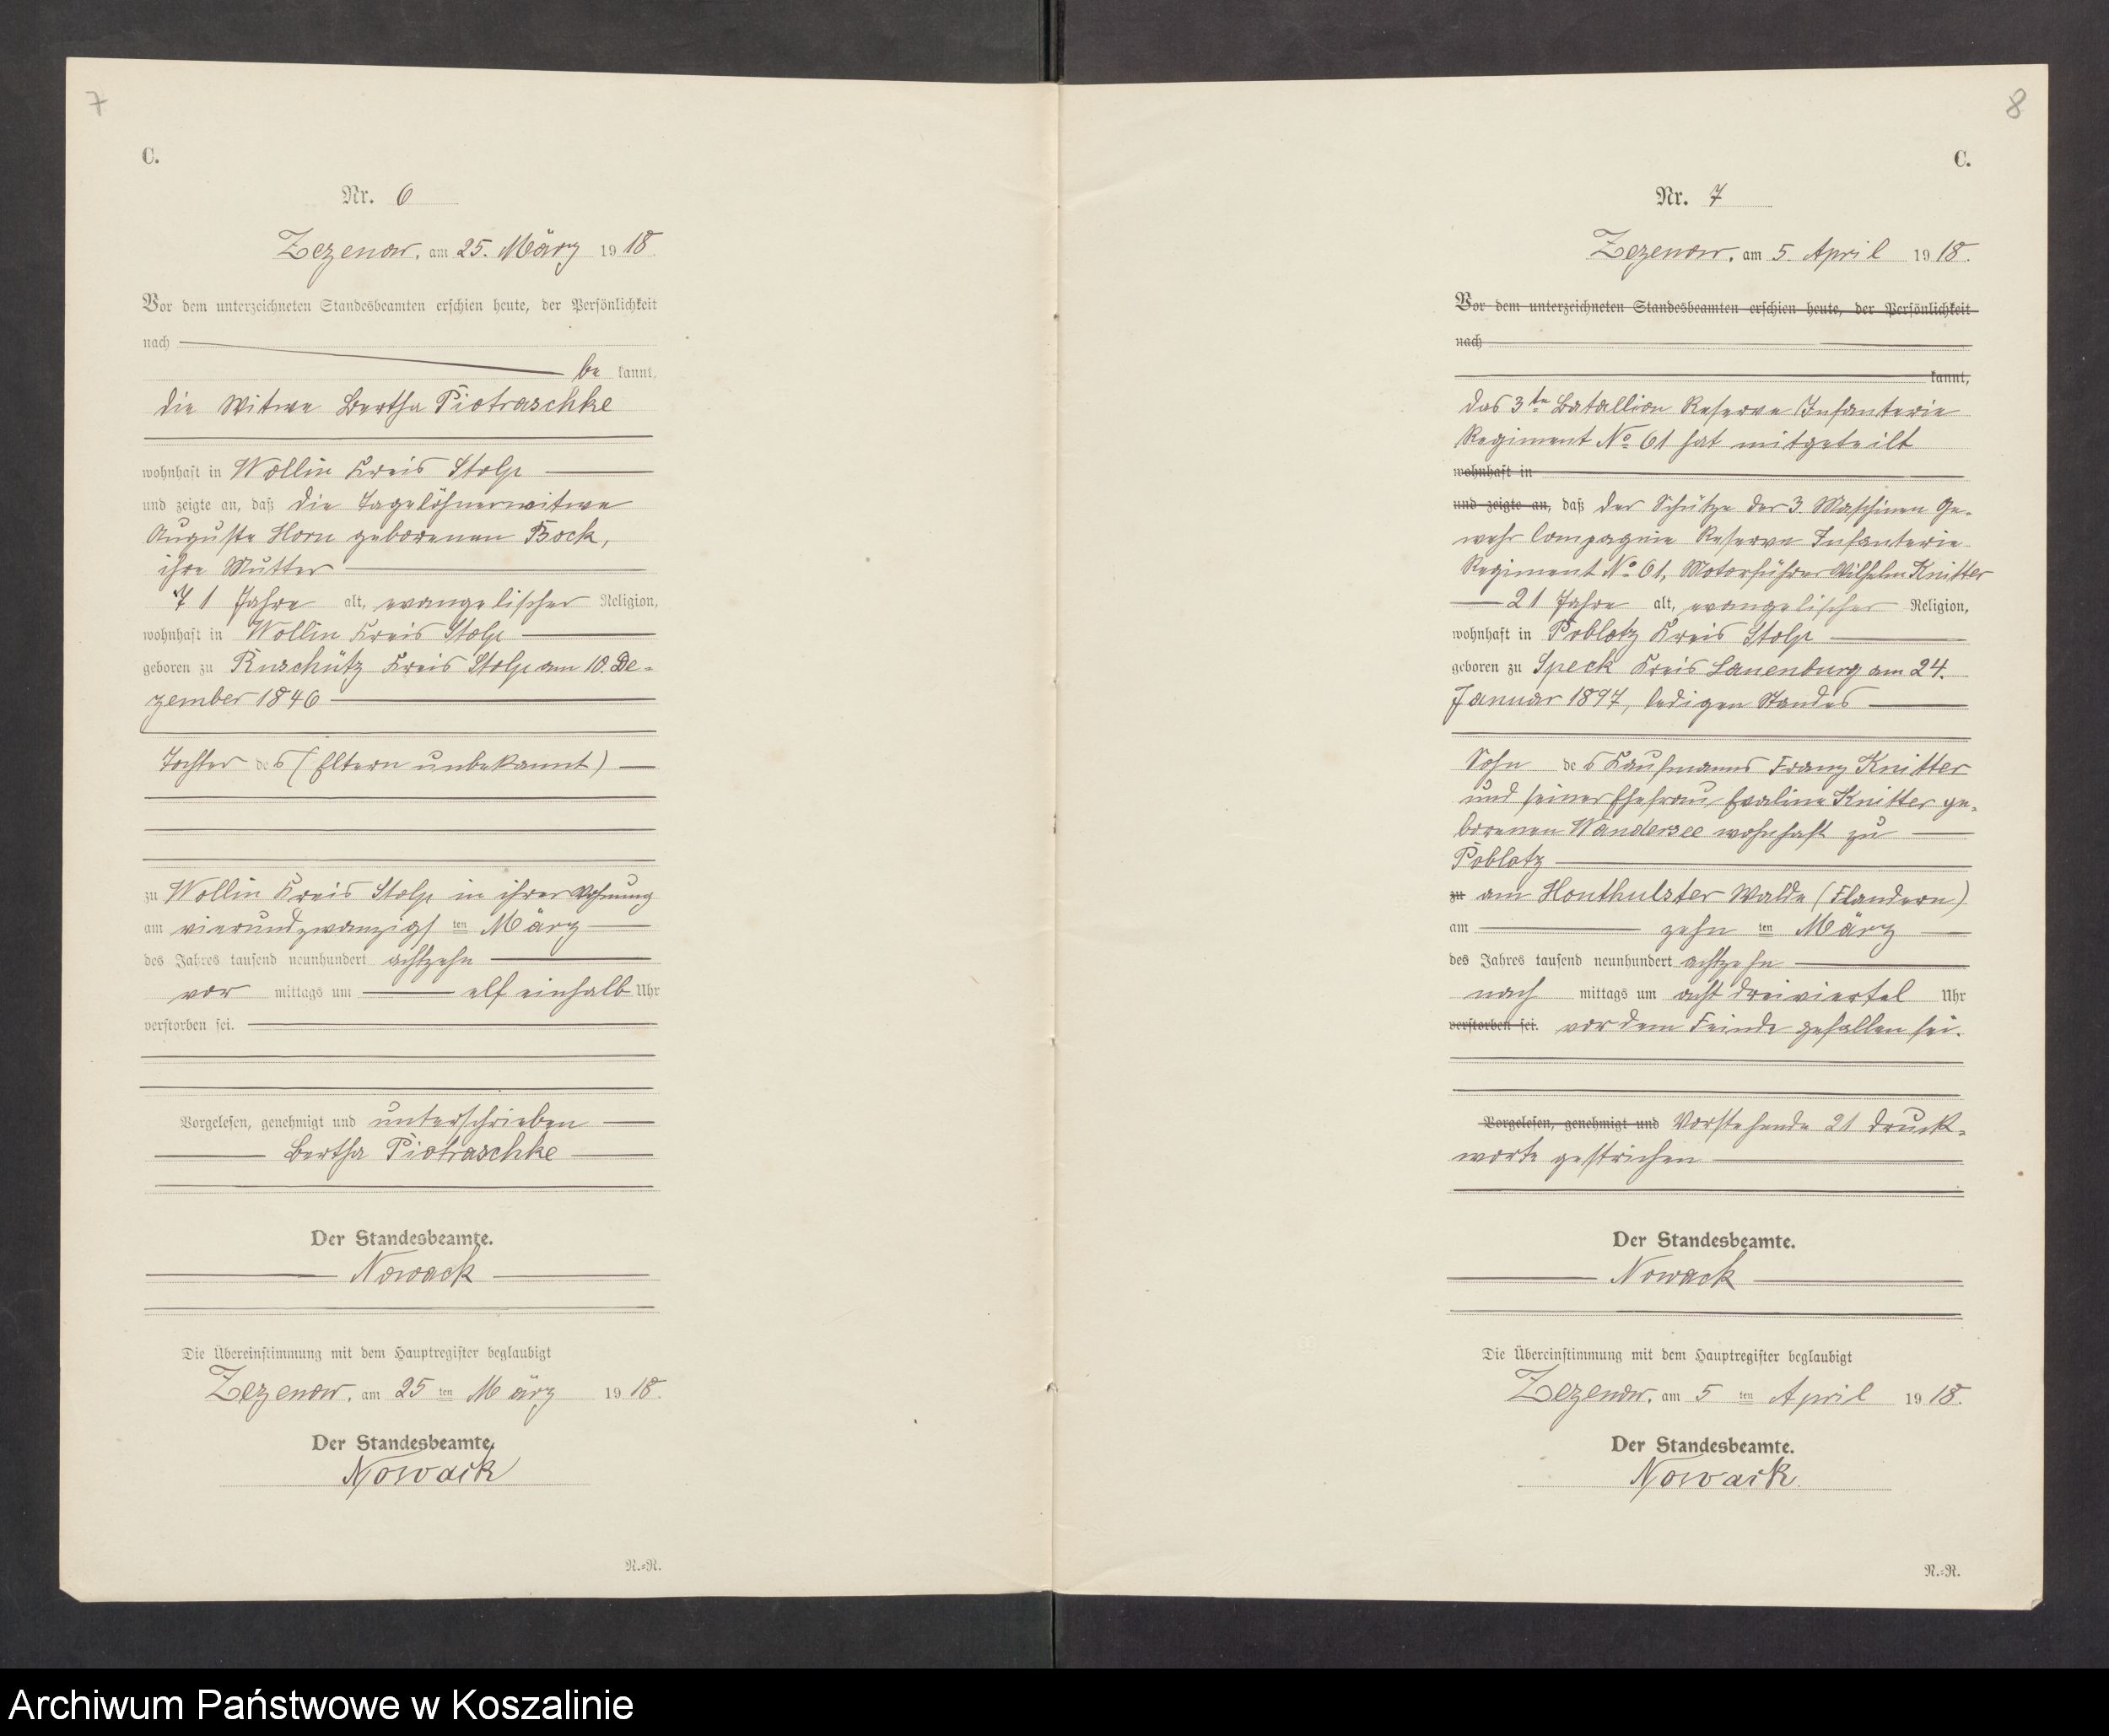 7
C.
Nr. 6
Zezenow, am 25. März 1918.
Vor dem unterzeichneten Standesbeamten erschien heute, der Persönlichkeit
nach
be kannt,
die Witwe Bertha Piotraschke
wohnhaft in Wollin Kreis Stolp
und zeigte an, daß die Tagelöhnerwitwe
Auguste Horn geborenen Bock,
ihre Mutter
71 Jahre alt, evangelischer Religion,
wohnhaft in Wollin Kreis Stolp
geboren zu Ruschütz Kreis Stolp am 10. De-
zember 1846
Tochter des (Eltern unbekannt)
zu Wollin Kreis Stolp in ihrer Wohnung
am vierundzwanzigsten März
des Jahres tausend neunhundert achtzehn
vor mittags um elf einhalb Uhr
verstorben sei.
Vorgelesen, genehmigt und unterschrieben
Bertha Piotraschke
Der Standesbeamte.
Nowack
Die Übereinstimmung mit dem Hauptregister beglaubigt
Zezenow, am 25 ten März 1918.
Der Standesbeamte.
Nowack
R.-R.
8
C.
Nr. 7
Zezenow, am 5. April 1918.
Vor dem unterzeichneten Standesbeamten erschien heute, der Persönlichkeit
nach
kannt,
das 3te Batallion Reserve Infanterie
Regiment No 61 hat mitgeteilt
wohnhaft in
und zeigte an, daß der Schütze der 3. Maschinen Ge-
wehr Compagnie Reserve Infanterie
Regiment No 61, Motorführer Wilhelm Knitter
21 Jahre alt, evangelischer Religion,
wohnhaft in Poblotz Kreis Stolp
geboren zu Speck Kreis Lauenburg am 24.
Januar 1897, ledigen Standes
Sohn des Kaufmanns Franz Knitter
und seiner Ehefrau Evaline Knitter ge-
borenen Wandersee wohnhaft zu
Poblotz
zu am Houthulster Walde (Flandern)
am zehn ten März
des Jahres tausend neunhundert achtzehn
nach mittags um acht dreiviertel Uhr
verstorben sei. vor dem Feinde gefallen sei.
Vorgelesen, genehmigt und Vorstehende 21 Druck-
worte gestrichen
Der Standesbeamte.
Nowack
Die Übereinstimmung mit dem Hauptregister beglaubigt
Zezenow, am 5 ten April 1918.
Der Standesbeamte.
Nowack.
R.-R.
Archiwum Państwowe w Koszalinie